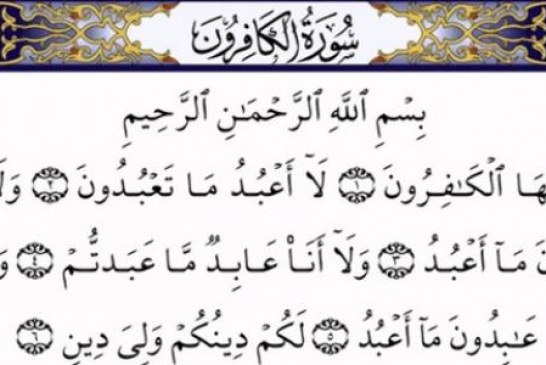 سُورَةُ الكَافِرُونَ
بِسْمِ ٱللَّهِ ٱلرَّحْمَـٰنِ ٱلرَّحِيمِ
ٱلْكَـٰفِرُونَ ١ لَآ أَعْبُدُ مَا تَعْبُدُونَ ٢ وَلَا
مَآ أَعْبُدُ ٣ وَلَآ أَنَا۠ عَابِدٌ مَّا عَبَدتُّمْ ٤
عَـٰبِدُونَ مَآ أَعْبُدُ ٥ لَكُمْ دِينُكُمْ وَلِىَ دِينِ ٦